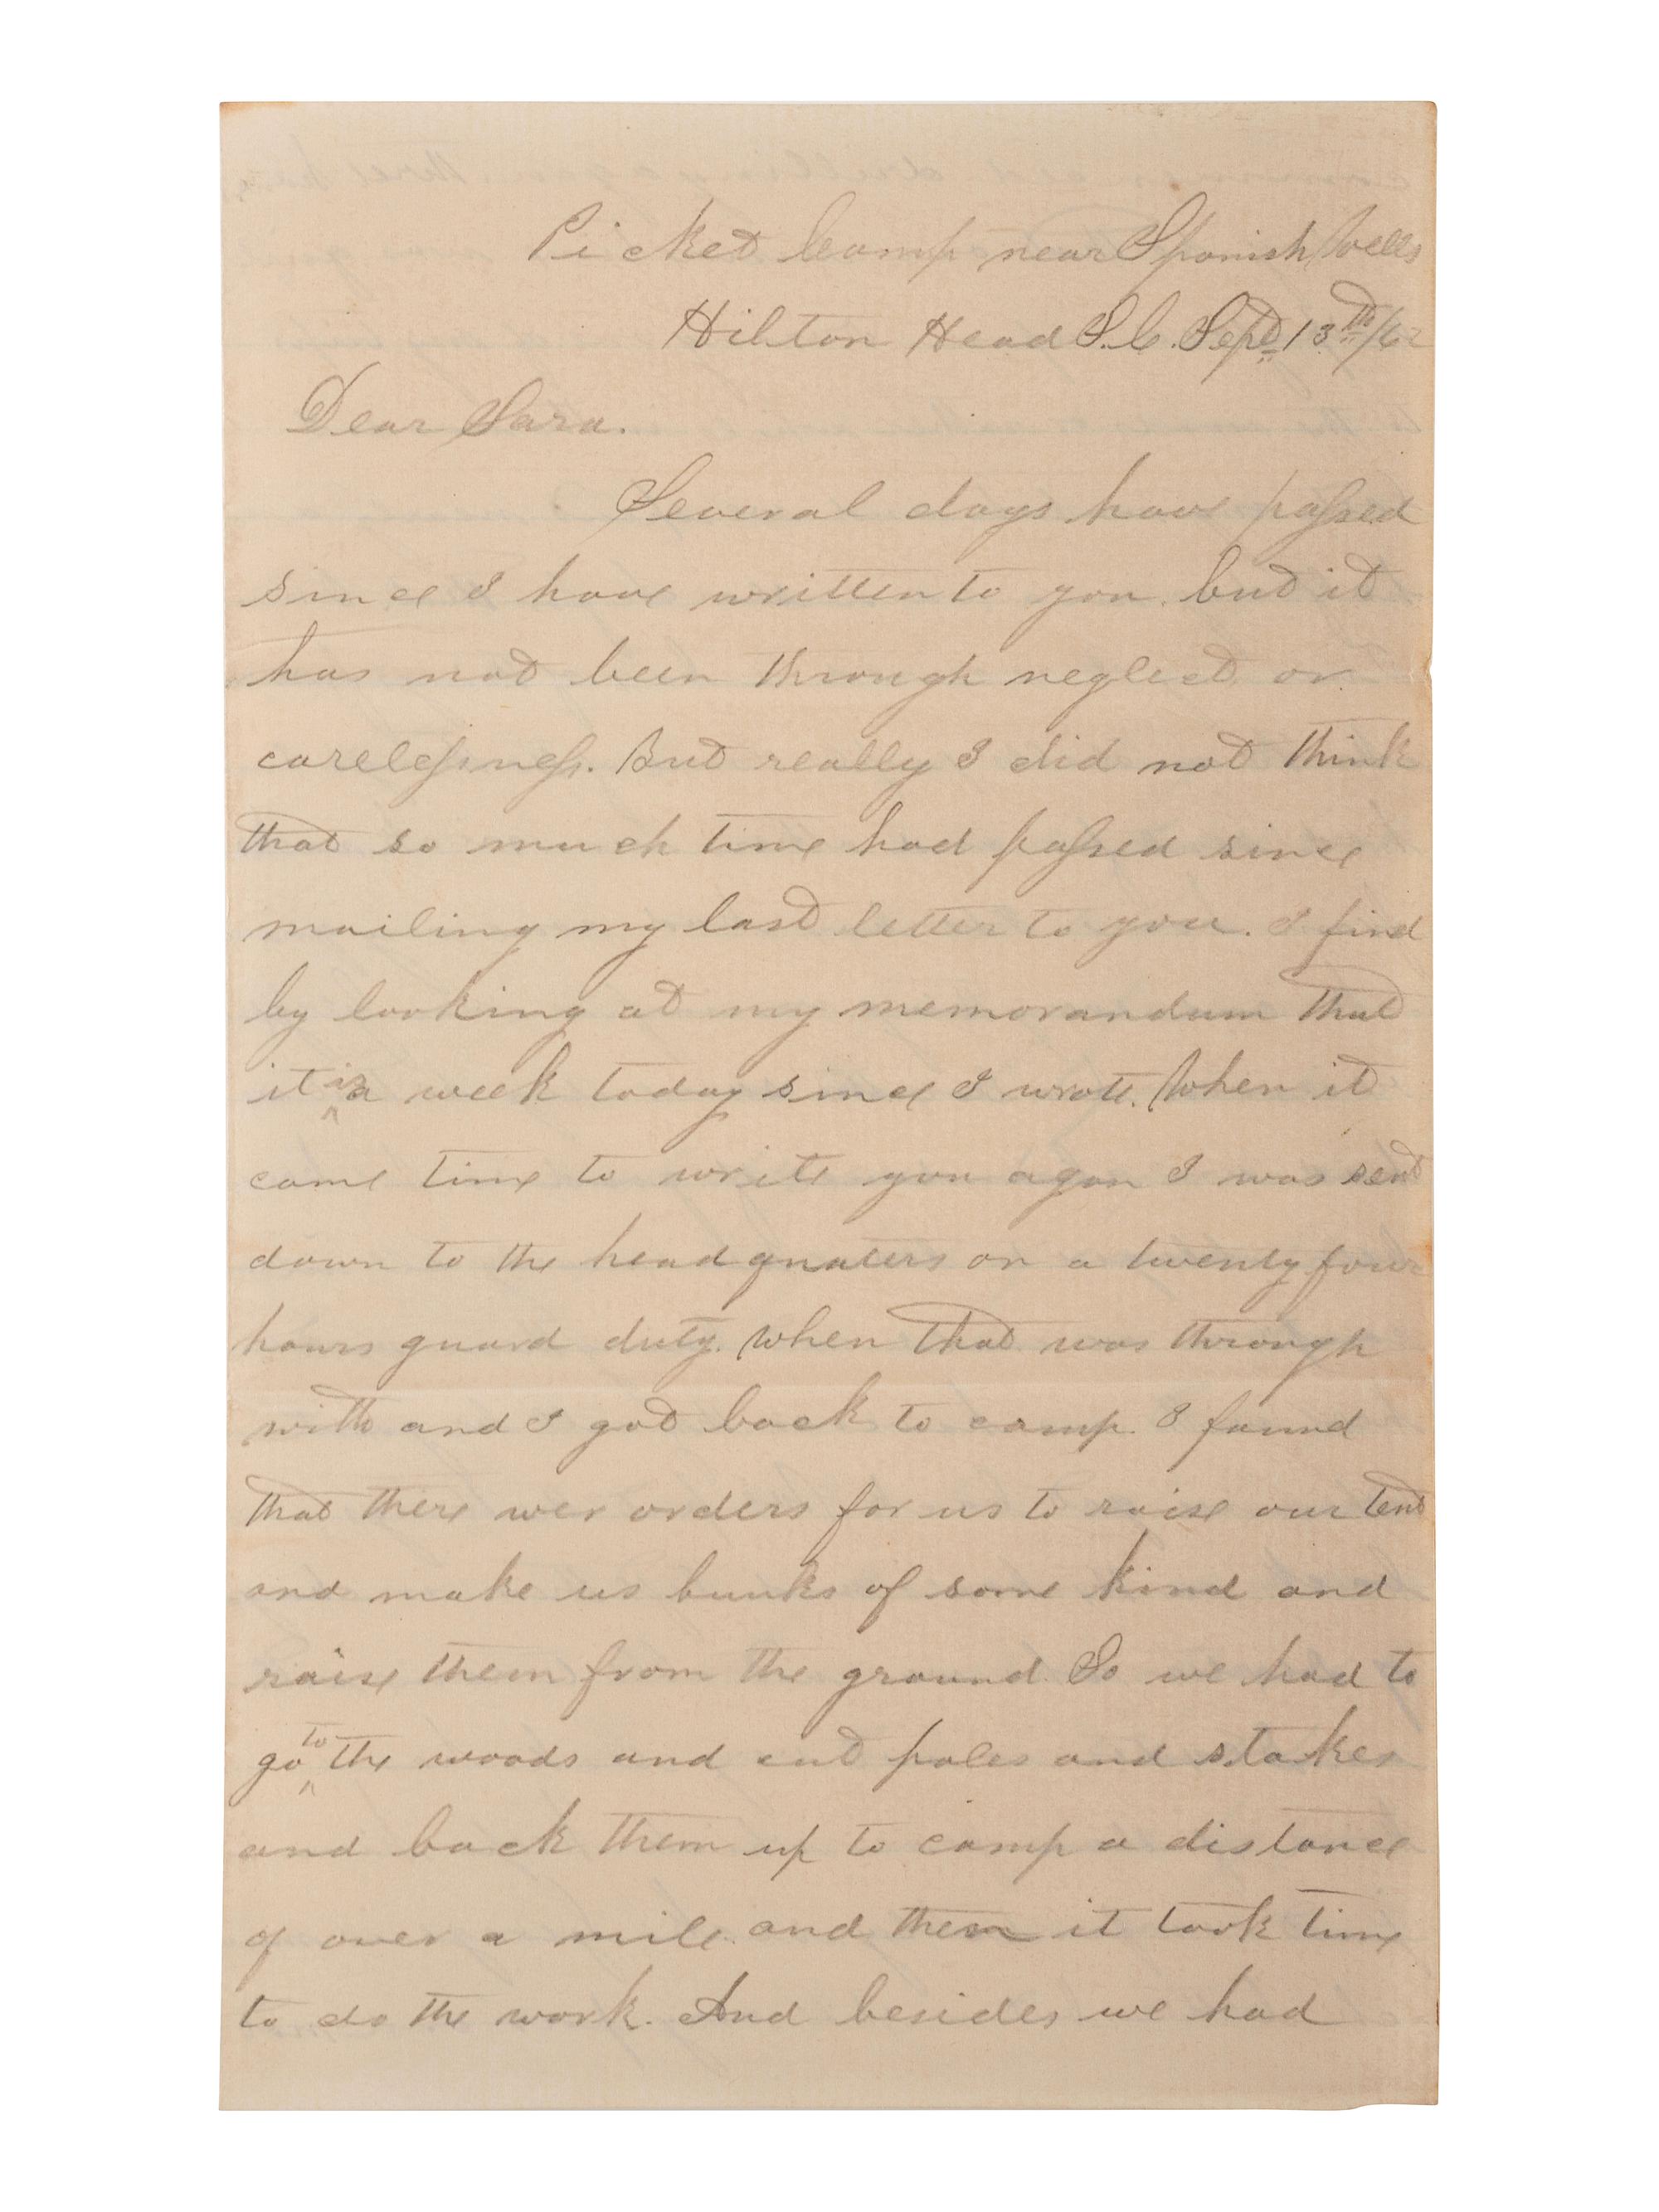 Picket Camp near Spanish Wells
Hilton Head S.C. Sept 13th/62
Dear Sara.
Several days have paſsed
since I have written to you. but it
has not been through neglect or
careleſsneſs. But really I did not think
that so much time had paſsed since
mailing my last letter to you. I find
by looking at my memorandum that
it is a week today since I wrote. When it
came time to write you agan I was sent
down to the headquaters on a twenty four
hours guard duty. When that was through
with and I got back to camp. I found
that there wer orders for us to raise our tent
and make us bunks of some kind and
raise them from the ground. So we had to
go to the woods and cut poles and stakes
and back them up to camp a distance
of over a mile. and then it took time
to do the work. And besides we had